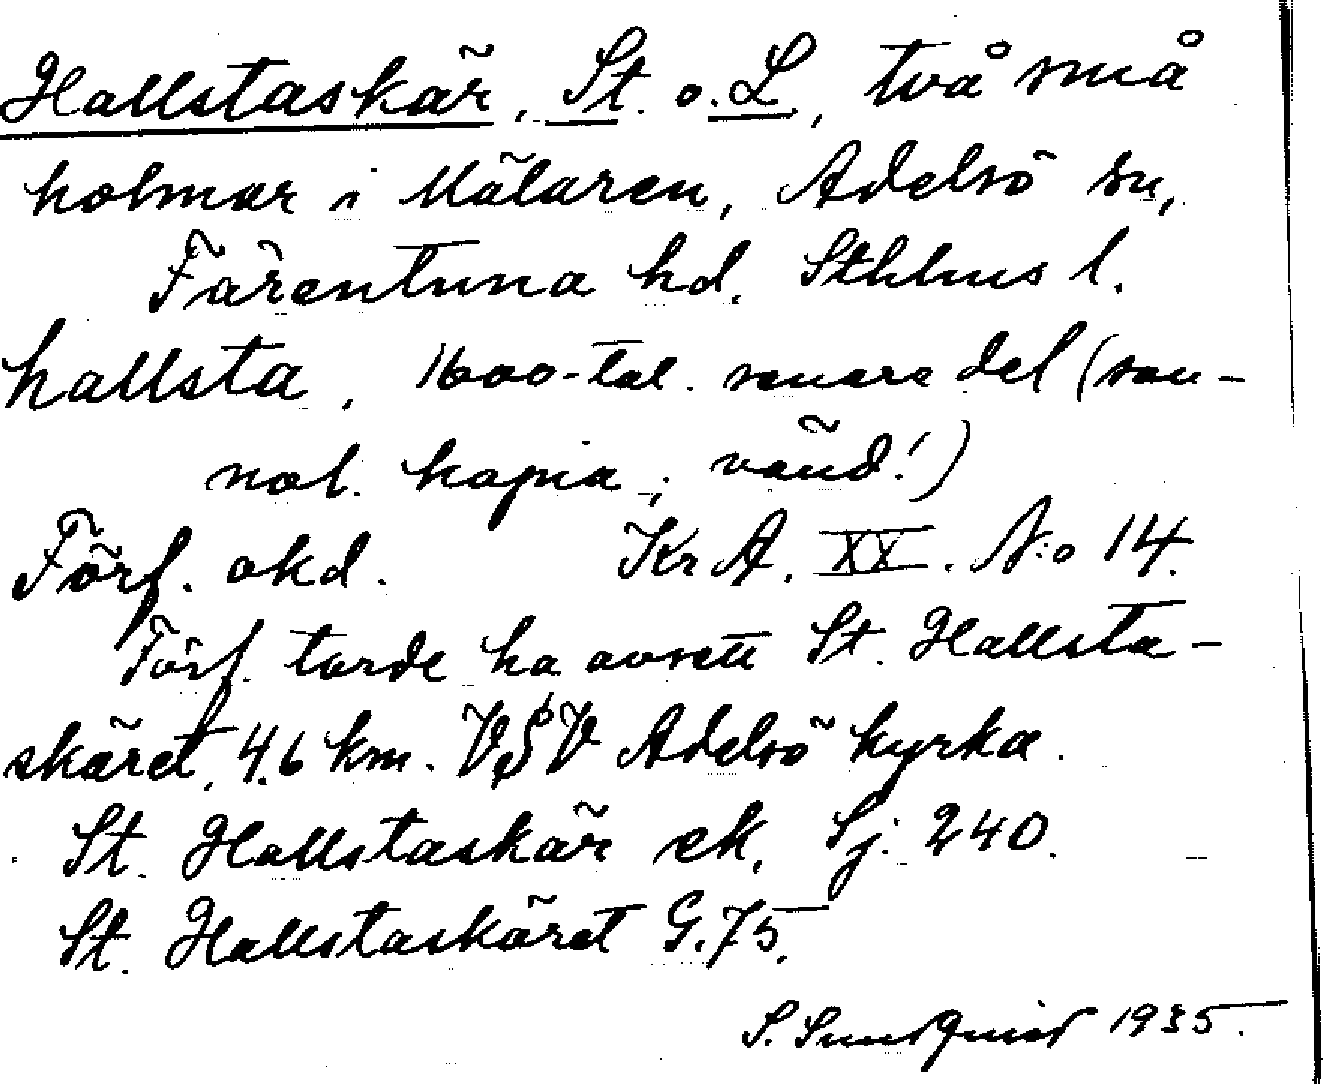 Hallstaskär, St. o. L., två små
holmar i Mälaren, Adelsö sn,
Färentuna hd. Sthlms l.
hallsta, 1600-tal. senare del (san-
nol. kopia; vänd!)
Förf. okd. KrA. XX. N:o 14.
Förf. torde ha avsett St. Hallsta-
skäret, 4.6 km. VSV Adelsö kyrka.
St. Hallstaskär ek. Sj. 240.
St. Hallstaskäret G. 75.
S. Sundquist 1935.